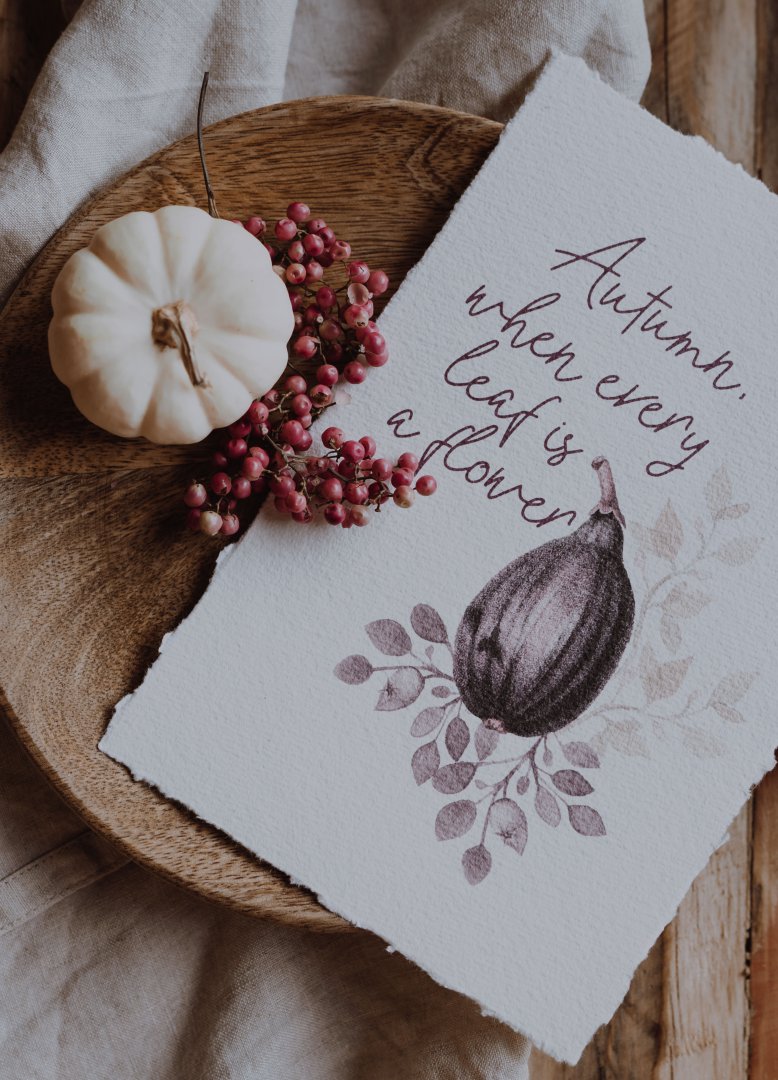 Autumn,
when every
leaf is
a flower